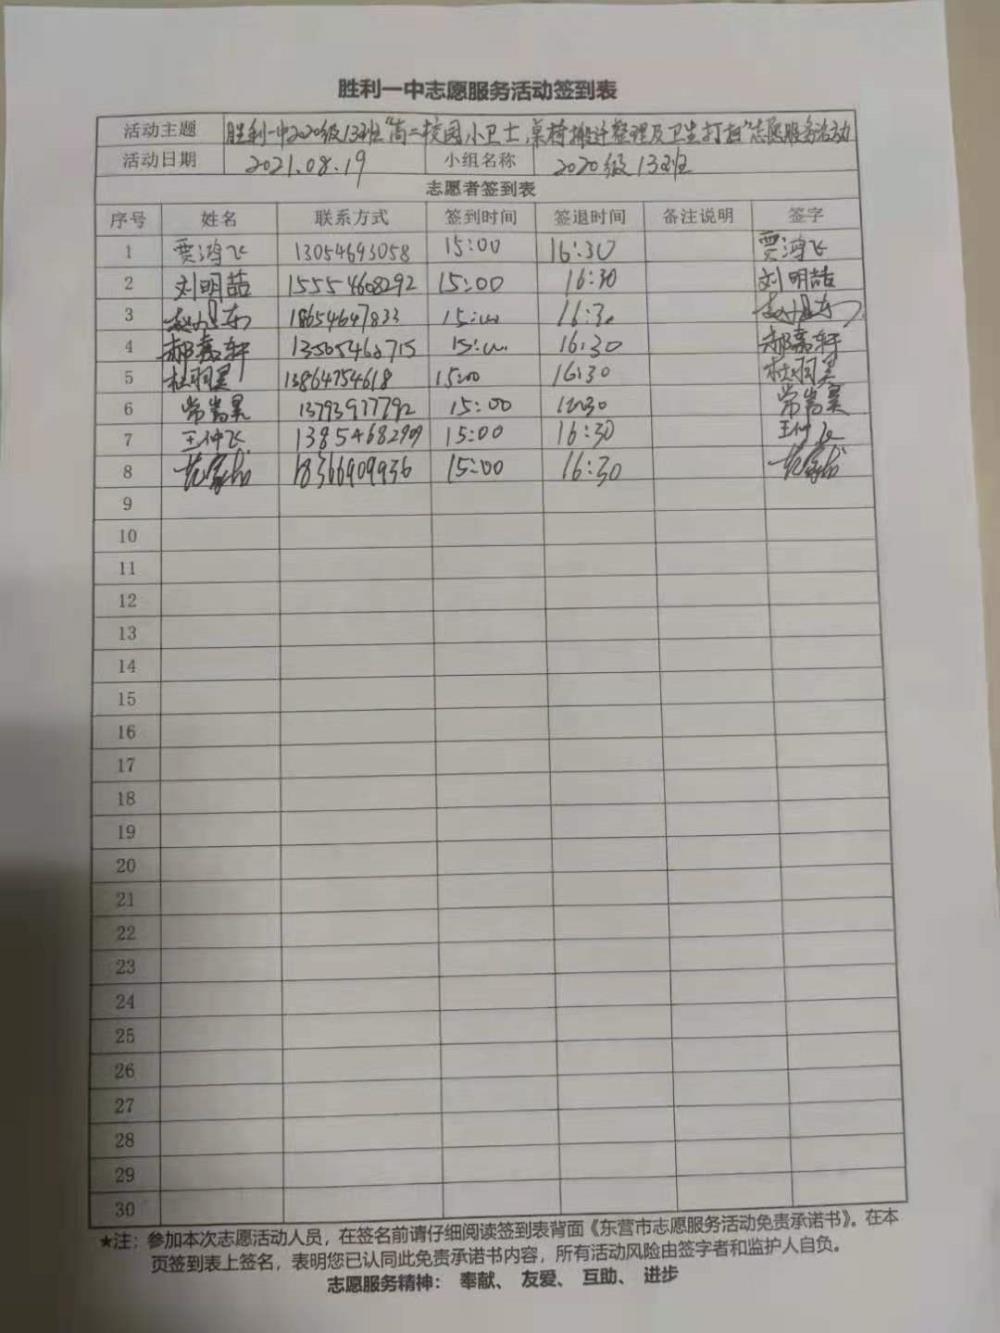 胜利一中志愿服务活动签到表
活动主题 胜利一中2020级13班"高二校园小卫士,桌椅搬迁整理及卫生打扫"志愿服务活动
活动日期 2021.08.19 小组名称 2020级13班
志愿者签到表
序号 姓名 联系方式 签到时间 签退时间 备注说明 签字
1 贾鸿飞 13054693058 15:00 16:30 贾鸿飞
2 刘明喆 15554608292 15:00 16:30 刘明喆
3 18654647833 15:00 16:30
4 郝嘉轩 13505468715 15:00 16:30 郝嘉轩
5 杜羽昊 13864754618 15:00 16:30 杜羽昊
6 常嵩昊 13793977792 15:00 16:30 常嵩昊
7 王仲飞 13854682909 15:00 16:30 王仲飞
8 18366909936 15:00 16:30
9
10
11
12
13
14
15
16
17
18
19
20
21
22
23
24
25
26
27
28
29
30
★注:参加本次志愿活动人员,在签名前请仔细阅读签到表背面《东营市志愿服务活动免责承诺书》。在本
页签到表上签名,表明您已认同此免责承诺书内容,所有活动风险由签字者和监护人自负。
志愿服务精神: 奉献、 友爱、 互助、 进步